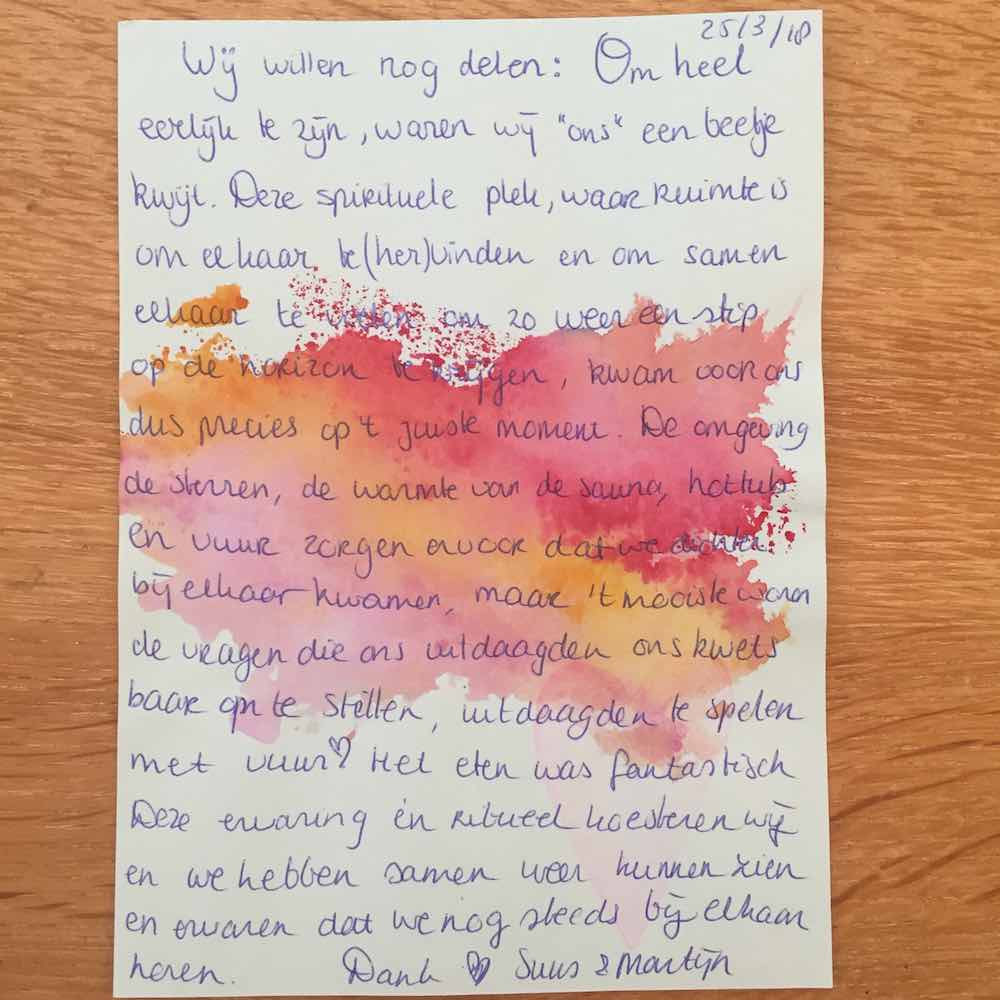 25/3/18
Wij willen nog delen: Om heel
eerlijk te zijn, waren wij "ons" een beetje
kwijt. Deze spirituele plek, waar ruimte is
om elkaar te (her)vinden en om samen
elkaar te voelen om zo weer een stip
op de horizon te krijgen, kwam voor ons
dus precies op 't juiste moment. De omgeving
de sterren, de warmte van de sauna, hottub
en vuur zorgen ervoor dat we dichter
bij elkaar kwamen, maar 't mooiste waren
de vragen die ons uitdaagden ons kwets
baar op te stellen, uitdaagden te spelen
met vuur♡ Het eten was fantastisch
Deze ervaring én ritueel koesteren wij
en we hebben samen weer kunnen zien
en ervaren dat we nog steeds bij elkaar
horen. Dank ♡ Suus & Martijn